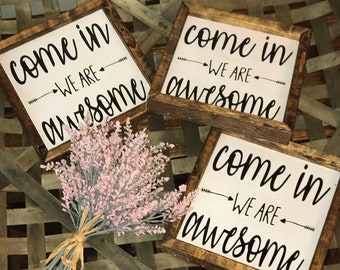 come in
WE ARE
awesome
come in
WE ARE
awesome
come in
WE ARE
awesome